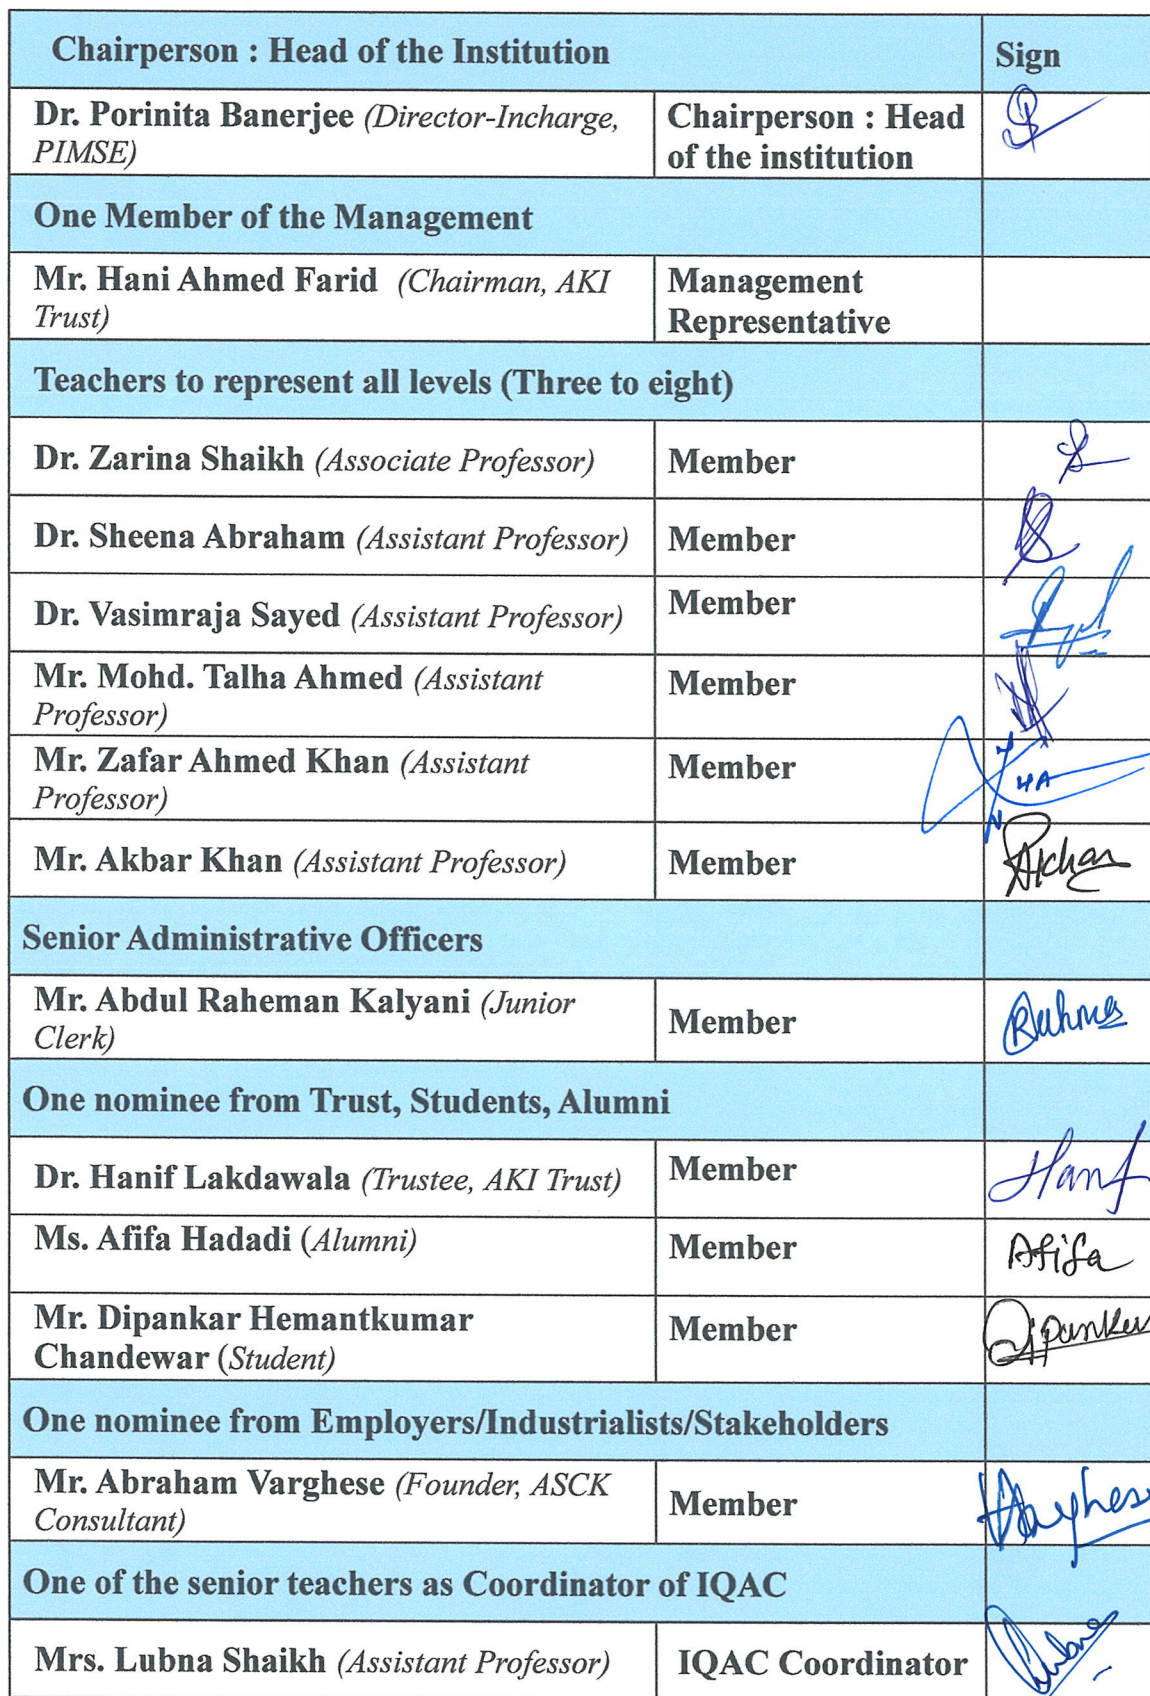 Chairperson : Head of the Institution Sign
Dr. Porinita Banerjee (Director-Incharge,
PIMSE)
Chairperson : Head
of the institution
One Member of the Management
Mr. Hani Ahmed Farid (Chairman, AKI
Trust)
Management
Representative
Teachers to represent all levels (Three to eight)
Dr. Zarina Shaikh (Associate Professor) Member
Dr. Sheena Abraham (Assistant Professor) Member
Dr. Vasimraja Sayed (Assistant Professor) Member
Mr. Mohd. Talha Ahmed (Assistant
Professor)
Member
Mr. Zafar Ahmed Khan (Assistant
Professor)
Member
Mr. Akbar Khan (Assistant Professor) Member
Senior Administrative Officers
Mr. Abdul Raheman Kalyani (Junior
Clerk)
Member
One nominee from Trust, Students, Alumni
Dr. Hanif Lakdawala (Trustee, AKI Trust) Member
Ms. Afifa Hadadi (Alumni) Member Afifa
Mr. Dipankar Hemantkumar
Chandewar (Student)
Member
One nominee from Employers/Industrialists/Stakeholders
Mr. Abraham Varghese (Founder, ASCK
Consultant)
Member
One of the senior teachers as Coordinator of IQAC
Mrs. Lubna Shaikh (Assistant Professor) IQAC Coordinator